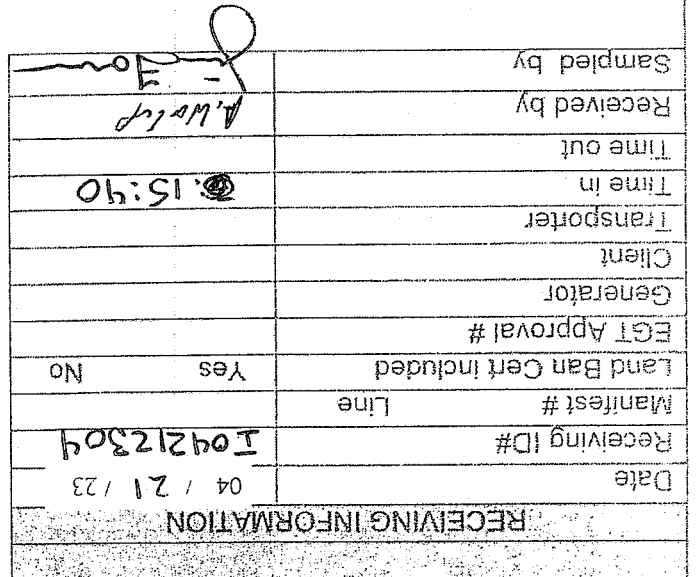 RECEIVING INFORMATION
Date 04 / 21 / 23
Receiving ID# I04212304
Manifest # Line
Land Ban Cert included Yes No
EGT Approval #
Generator
Client
Transporter
Time in 15:40
Time out
Received by A.
Sampled by